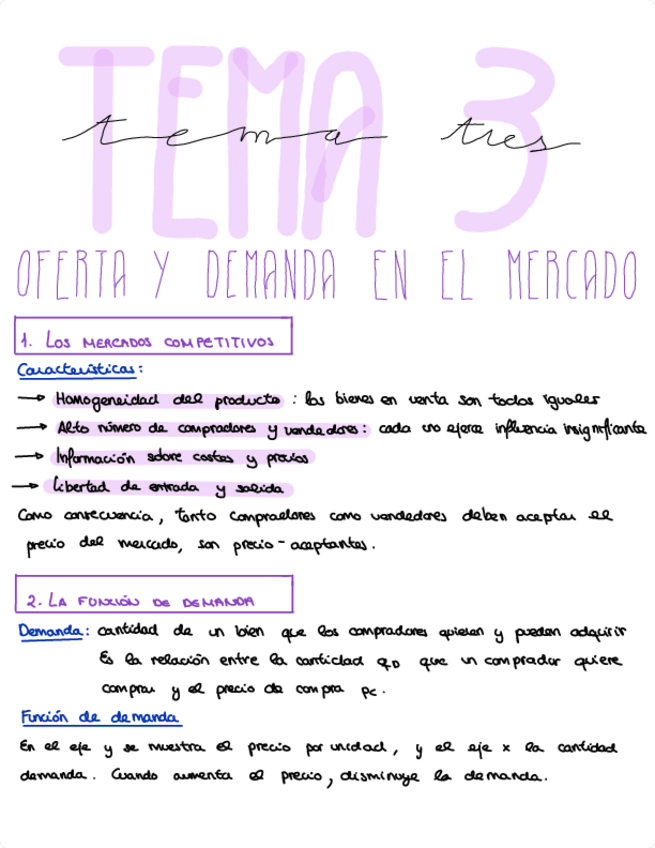 TEMA 3
tema tres
OFERTA Y DEMANDA EN EL MERCADO
1. LOS MERCADOS COMPETITIVOS
Características:
→ Homogeneidad del producto : los bienes en venta son todos iguales
→ Alto número de compradores y vendedores: cada uno ejerce influencia insignificante
→ Información sobre costes y precios
→ Libertad de entrada y salida
Como consecuencia, tanto compradores como vendedores deben aceptar el
precio del mercado, son precio-aceptantes.
2. LA FUNCIÓN DE DEMANDA
Demanda: cantidad de un bien que los compradores quieren y pueden adquirir
Es la relación entre la cantidad qD que un comprador quiere
comprar y el precio de compra pc.
Función de demanda
En el eje y se muestra el precio por unidad, y el eje x la cantidad
demanda. Cuando aumenta el precio, disminuye la demanda.